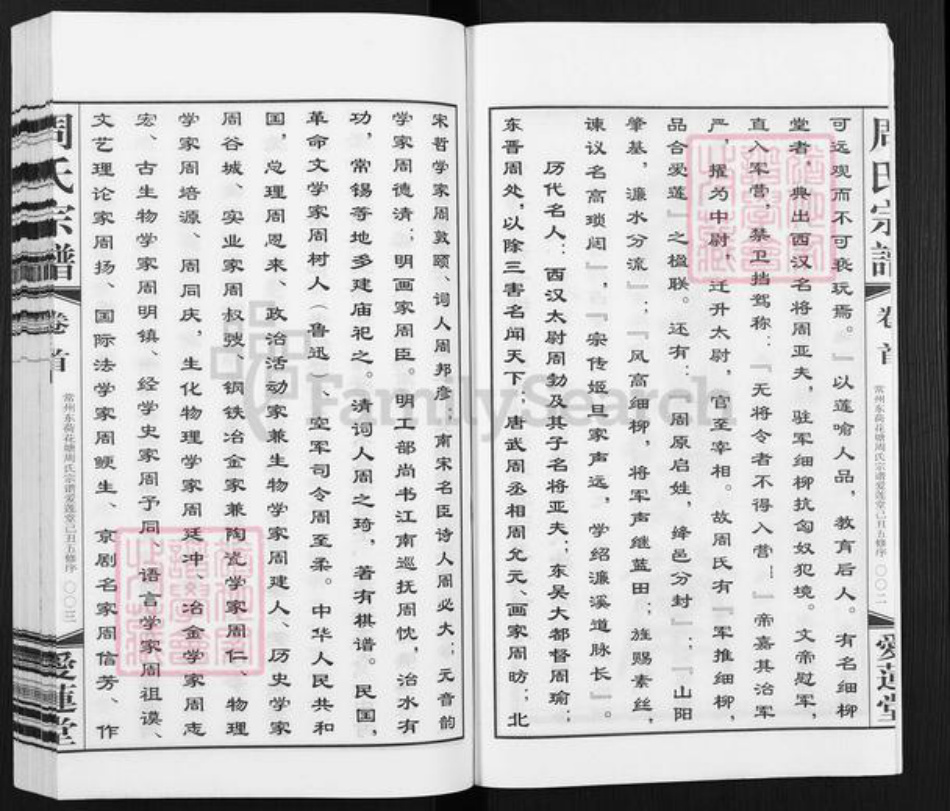 周氏宗譜
卷首
常州东荷花塘周氏宗谱爱莲堂己丑五修序
〇〇二
愛蓮堂
可远观而不可亵玩焉。』以莲喻人品，教育后人。有名细柳
堂者，典出西汉名将周亚夫，驻军细柳抗匈奴犯境。文帝慰军，
直入军营，禁卫挡驾称：『无将令者不得入营！』帝嘉其治军
严，擢为中尉，迁升太尉，官至宰相。故周氏有『军推细柳，
品合爱莲』之楹联。还有：『周原启姓，绛邑分封』；『山阳
肇基，濂水分流』；『风高细柳，将军声继蓝田；旌赐素丝，
谏议名高琐闼』，『宗传姬旦家声远，学绍濂溪道脉长』。
历代名人：西汉太尉周勃及其子名将亚夫；东吴大都督周瑜；
东晋周处，以除三害名闻天下；唐武周丞相周允元、画家周昉；北
宋哲学家周敦颐、词人周邦彦；南宋名臣诗人周必大；元音韵
学家周德清；明画家周臣。明工部尚书江南巡抚周忱，治水有
功，常锡等地多建庙祀之。清词人周之琦，著有棋谱。民国，
革命文学家周树人（鲁迅）、空军司令周至柔。中华人民共和
国，总理周恩来、政治活动家兼生物学家周建人、历史学家
周谷城、实业家周叔弢、钢铁冶金家兼陶瓷学家周仁、物理
学家周培源、周同庆，生化物理学家周廷冲、冶金学家周志
宏、古生物学家周明镇、经学史家周予同、语言学家周祖谟、
文艺理论家周扬、国际法学家周鲠生、京剧名家周信芳、作
周氏宗譜
卷首
常州东荷花塘周氏宗谱爱莲堂己丑五修序
〇〇三
愛蓮堂
FamilySearch